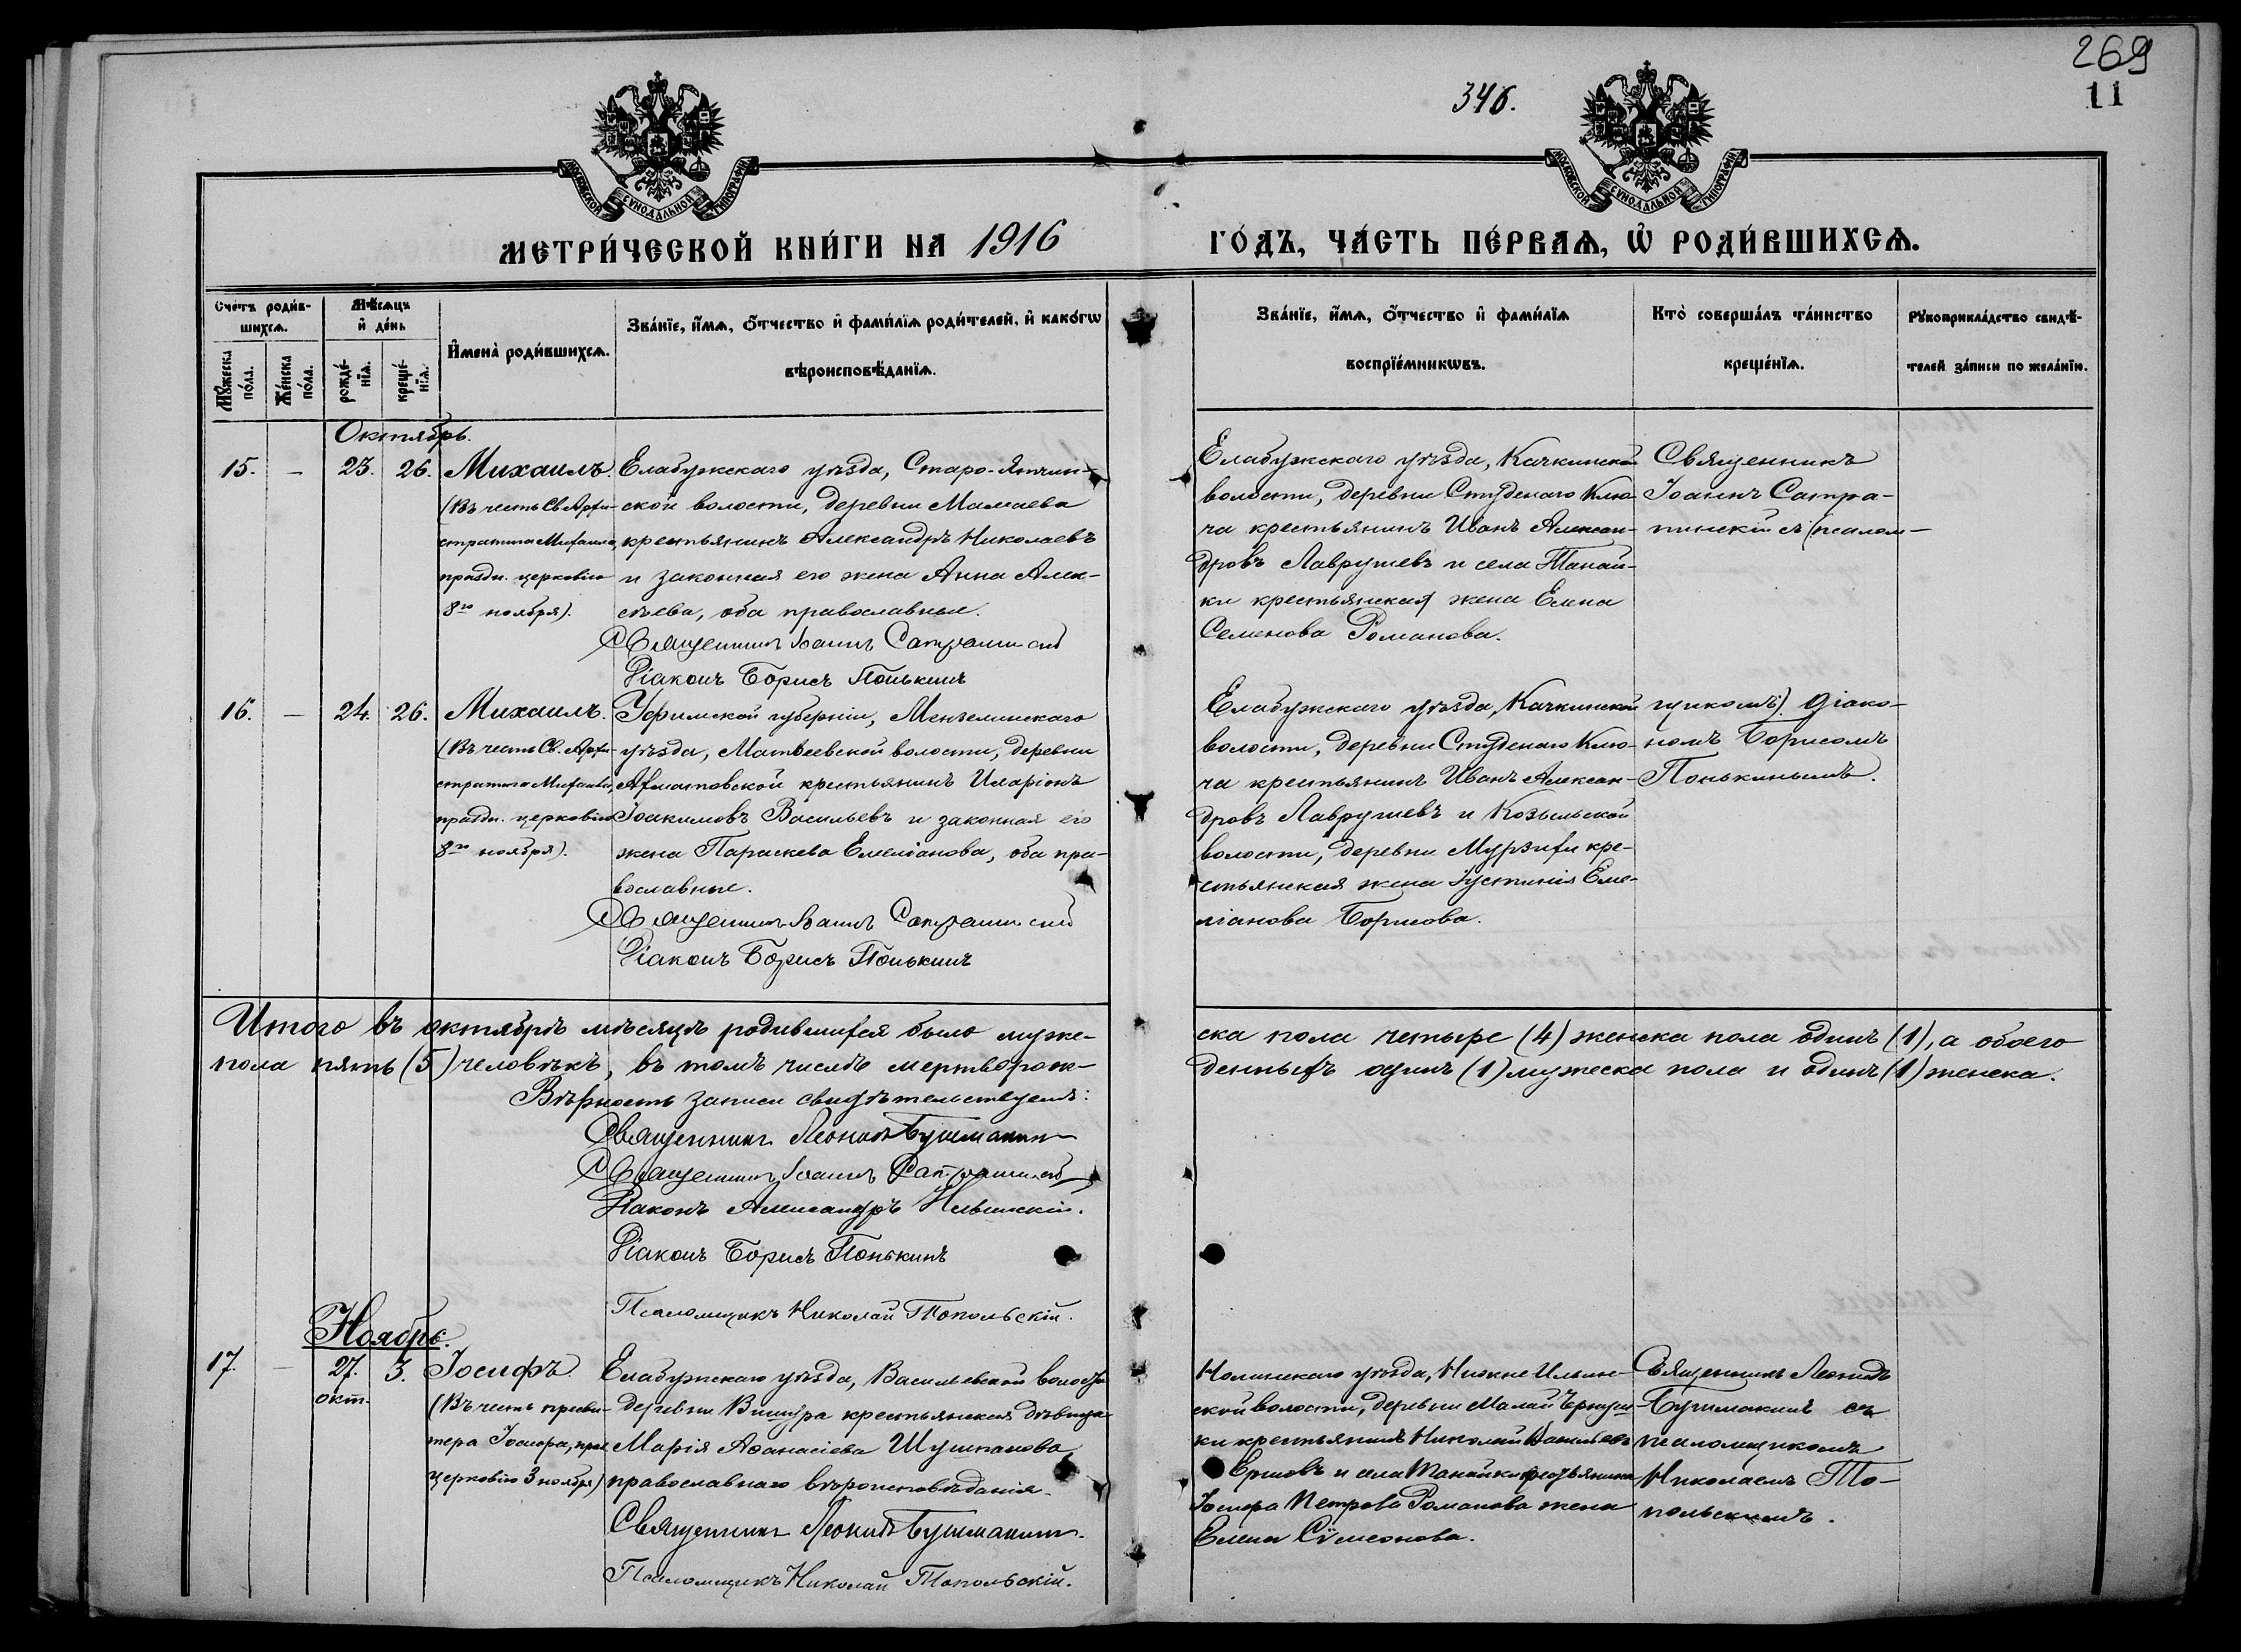 269
11
346.
МОСКОВСКОЙ СѴНОДАЛЬНОЙ ТИПОГРАФІИ
МОСКОВСКОЙ СѴНОДАЛЬНОЙ ТИПОГРАФІИ
МЕТРИ́ЧЕСКОЙ КНИ́ГИ НА 1916
ГО́ДЪ, ЧА́СТЬ ПЕ́РВАѦ, Ѡ҆ РОДИ́ВШИХСѦ.
Счетъ роди́в-
шихсѧ.
Мꙋ́жеска
по́ла.
Же́нска
по́ла.
Мѣ́сѧцъ
и҆ де́нь
рожде́-
нїѧ.
креще́-
нїѧ.
И҆мена̀ роди́вшихсѧ.
Зва́нїе, и҆́мѧ, ѻ҆́тчество и҆ фами́лїѧ роди́телей, и҆ како́гѡ
вѣроисповѣ́данїѧ.
Зва́нїе, и҆́мѧ, ѻ҆́тчество и҆ фами́лїѧ
воспрїе́мникѡвъ.
Кто̀ соверша́лъ та́инство
креще́нїѧ.
Рꙋкоприкла́дство свидѣ́-
телей за́писи по жела́нїю.
Октябрь.
15. — 23. 26. Михаилъ.
(Въ честь Св. Архи-
стратига Михаила,
праздн. церковію
8го ноября).
Елабужскаго уѣзда, Старо-Ятчин-
ской волости, деревни Мамаева
крестьянинъ Александръ Николаевъ
и законная его жена Анна Алек-
сѣева, оба православные.
Священникъ Іоаннъ Сатрапинскій
Діаконъ Борисъ Понькинъ
Елабужскаго уѣзда, Качкинской
волости, деревни Студенаго Клю-
ча крестьянинъ Иванъ Алексан-
дровъ Лаврушевъ и села Танай-
ки крестьянская жена Елена
Семенова Романова.
Священникъ
Іоаннъ Сатра-
пинскій съ (псалом-
16. — 24. 26. Михаилъ.
(Въ честь Св. Архи-
стратига Михаила,
праздн. церковію
8го ноября).
Уфимской губерніи, Мензелинскаго
уѣзда, Матвеевской волости, деревни
Ахматовской крестьянинъ Иларіонъ
Іоакимовъ Васильевъ и законная его
жена Параскева Емеліанова, оба пра-
вославные.
Священникъ Іоаннъ Сатрапинскій
Діаконъ Борисъ Понькинъ
Елабужскаго уѣзда, Качкинской
волости, деревни Студенаго Клю-
ча крестьянинъ Иванъ Алексан-
дровъ Лаврушевъ и Козыльской
волости, деревни Мурзихи кре-
стьянская жена Іустинія Еме-
ліанова Борисова.
щикомъ). Діако-
номъ Борисомъ
Понькинымъ.
Итого въ октябрѣ мѣсяцѣ родившихся было муже-
ска пола четыре (4) женска пола одинъ (1), а обоего
пола пять (5) человѣкъ, въ томъ числѣ мертворож-
денныхъ одинъ (1) мужеска пола и одинъ (1) женска.
Вѣрность записи свидѣтельствуемъ:
Священникъ Леонидъ Бушмакинъ
Священникъ Іоаннъ Сатрапинскій
Діаконъ Александръ
Діаконъ Борисъ Понькинъ
Псаломщикъ Николай Топольскій.
Ноябрь.
17. — 27. 3. Іосифъ.
окт.
(Въ честь пресви-
тера Іосифа, праз
церковію 3 ноября)
Елабужскаго уѣзда, Васильевской волости
деревни Вишура крестьянская дѣвица
Марія Аѳанасіева Шушпанова
православнаго вѣроисповѣданія.
Священникъ Леонидъ Бушмакинъ.
Псаломщикъ Николай Топольскій.
Нолинскаго уѣзда, Нижне Ильин-
ской волости, деревни Малой
ки крестьянинъ Николай Васильевъ
Ершовъ и села Танайки крестьянина
Іосифа Петрова Романова жена
Елена Сѵмеонова.
Священникъ Леонидъ
Бушмакинъ съ
псаломщикомъ
Николаемъ То-
польскимъ.